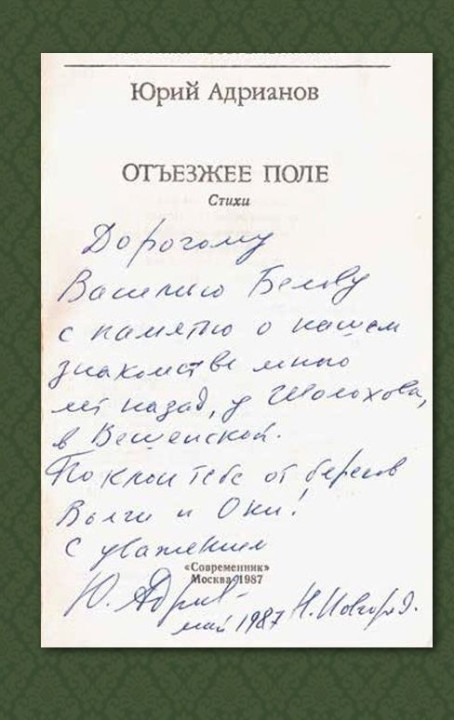 Юрий Адрианов
ОТЪЕЗЖЕЕ ПОЛЕ
Стихи
Дорогому
Василию Белову
с памятью о нашем
знакомстве много
лет назад, у Шолохова,
в Вешенской.
Поклон тебе от берегов
Волги и Оки!
С уважением
«Современник»
Москва 1987
Ю. Адриа-
май 1987 Н. Новгород.